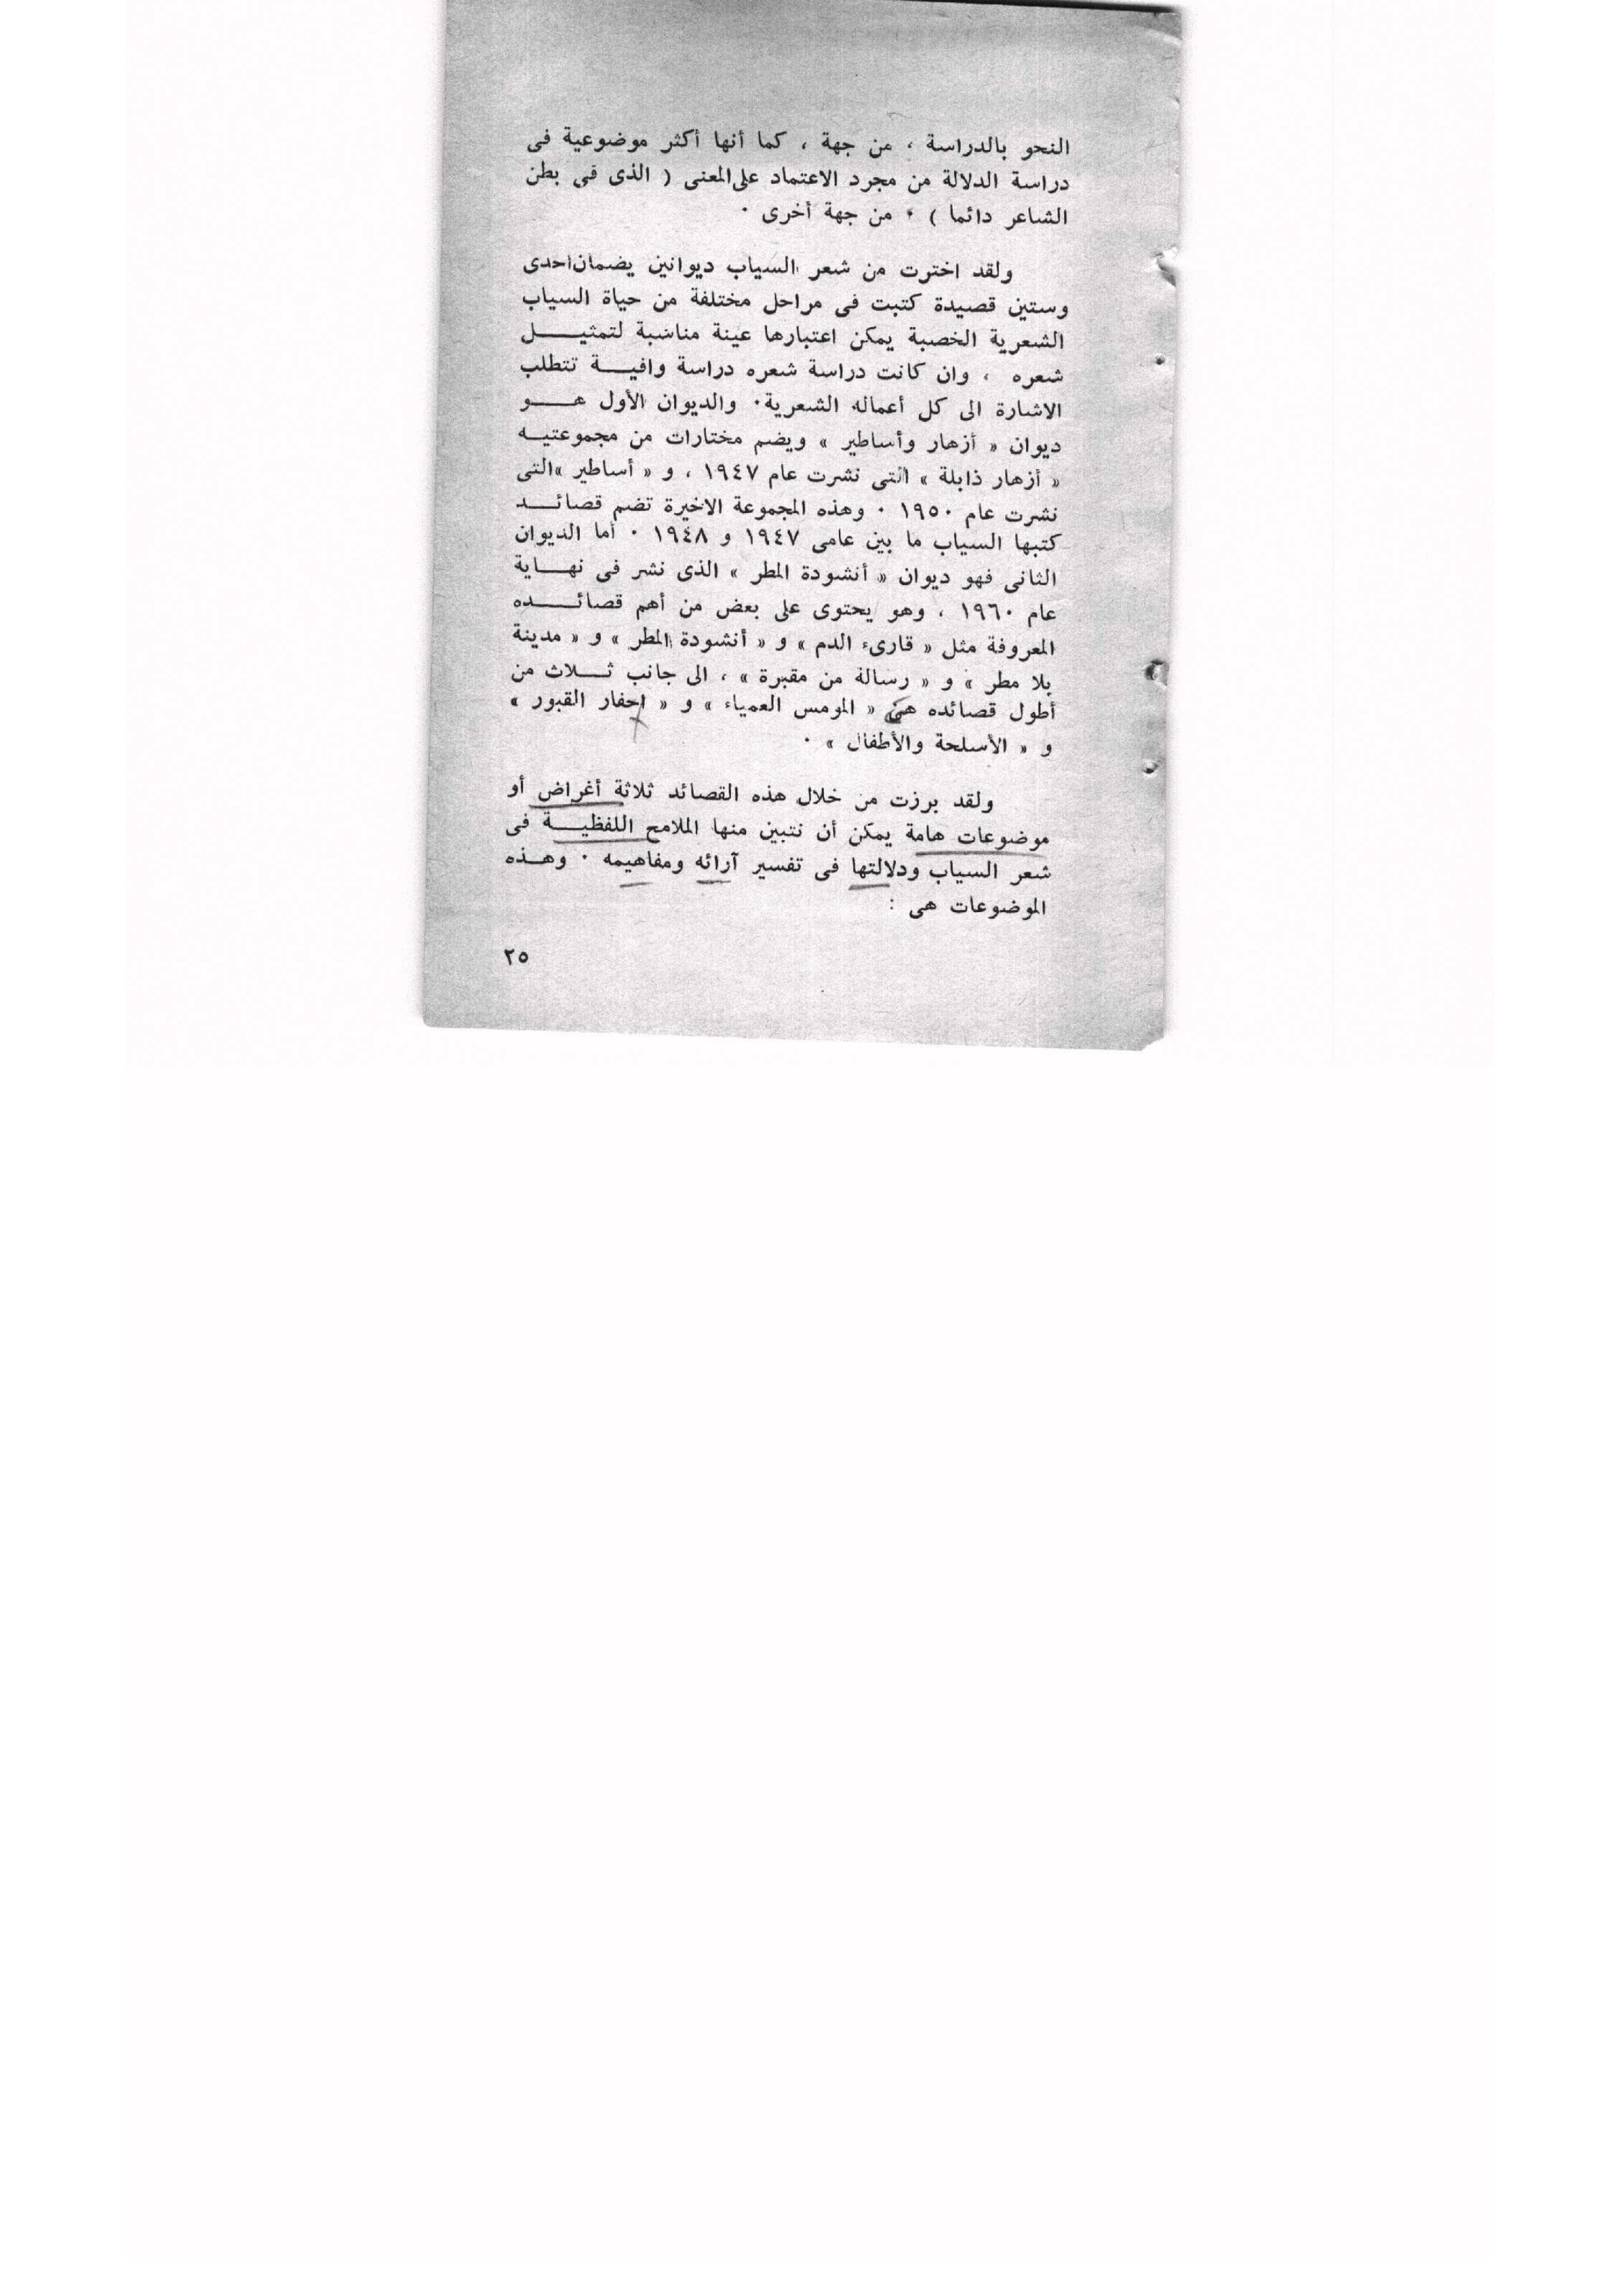 النحو بالدراسة ، من جهة ، كما أنها أكثر موضوعية فى
دراسة الدلالة من مجرد الاعتماد على المعنى ( الذى فى بطن
الشاعر دائما ) ، من جهة أخرى .
ولقد اخترت من شعر السياب ديوانين يضمان احدى
وستين قصيدة كتبت فى مراحل مختلفة من حياة السياب
الشعرية الخصبة يمكن اعتبارها عينة مناسبة لتمثيـــل
شعره ، وان كانت دراسة شعره دراسة وافيــة تتطلب
الاشارة الى كل أعماله الشعرية . والديوان الأول هـــو
ديوان « أزهار وأساطير » ويضم مختارات من مجموعتيه
« أزهار ذابلة » التى نشرت عام ١٩٤٧ ، و « أساطير » التى
نشرت عام ١٩٥٠ . وهذه المجموعة الاخيرة تضم قصائــد
كتبها السياب ما بين عامى ١٩٤٧ و ١٩٤٨ . أما الديوان
الثانى فهو ديوان « أنشودة المطر » الذى نشر فى نهـاية
عام ١٩٦٠ ، وهو يحتوى على بعض من أهم قصائـــده
المعروفة مثل « قارىء الدم » و « أنشودة المطر » و « مدينة
بلا مطر » و « رسالة من مقبرة » ، الى جانب ثــلاث من
أطول قصائده هى « المومس العمياء » و « احفار القبور »
و « الأسلحة والأطفال » .
ولقد برزت من خلال هذه القصائد ثلاثة أغراض أو
موضوعات هامة يمكن أن نتبين منها الملامح اللفظيــة فى
شعر السياب ودلالتها فى تفسير آرائه ومفاهيمه . وهـذه
الموضوعات هى :
٢٥